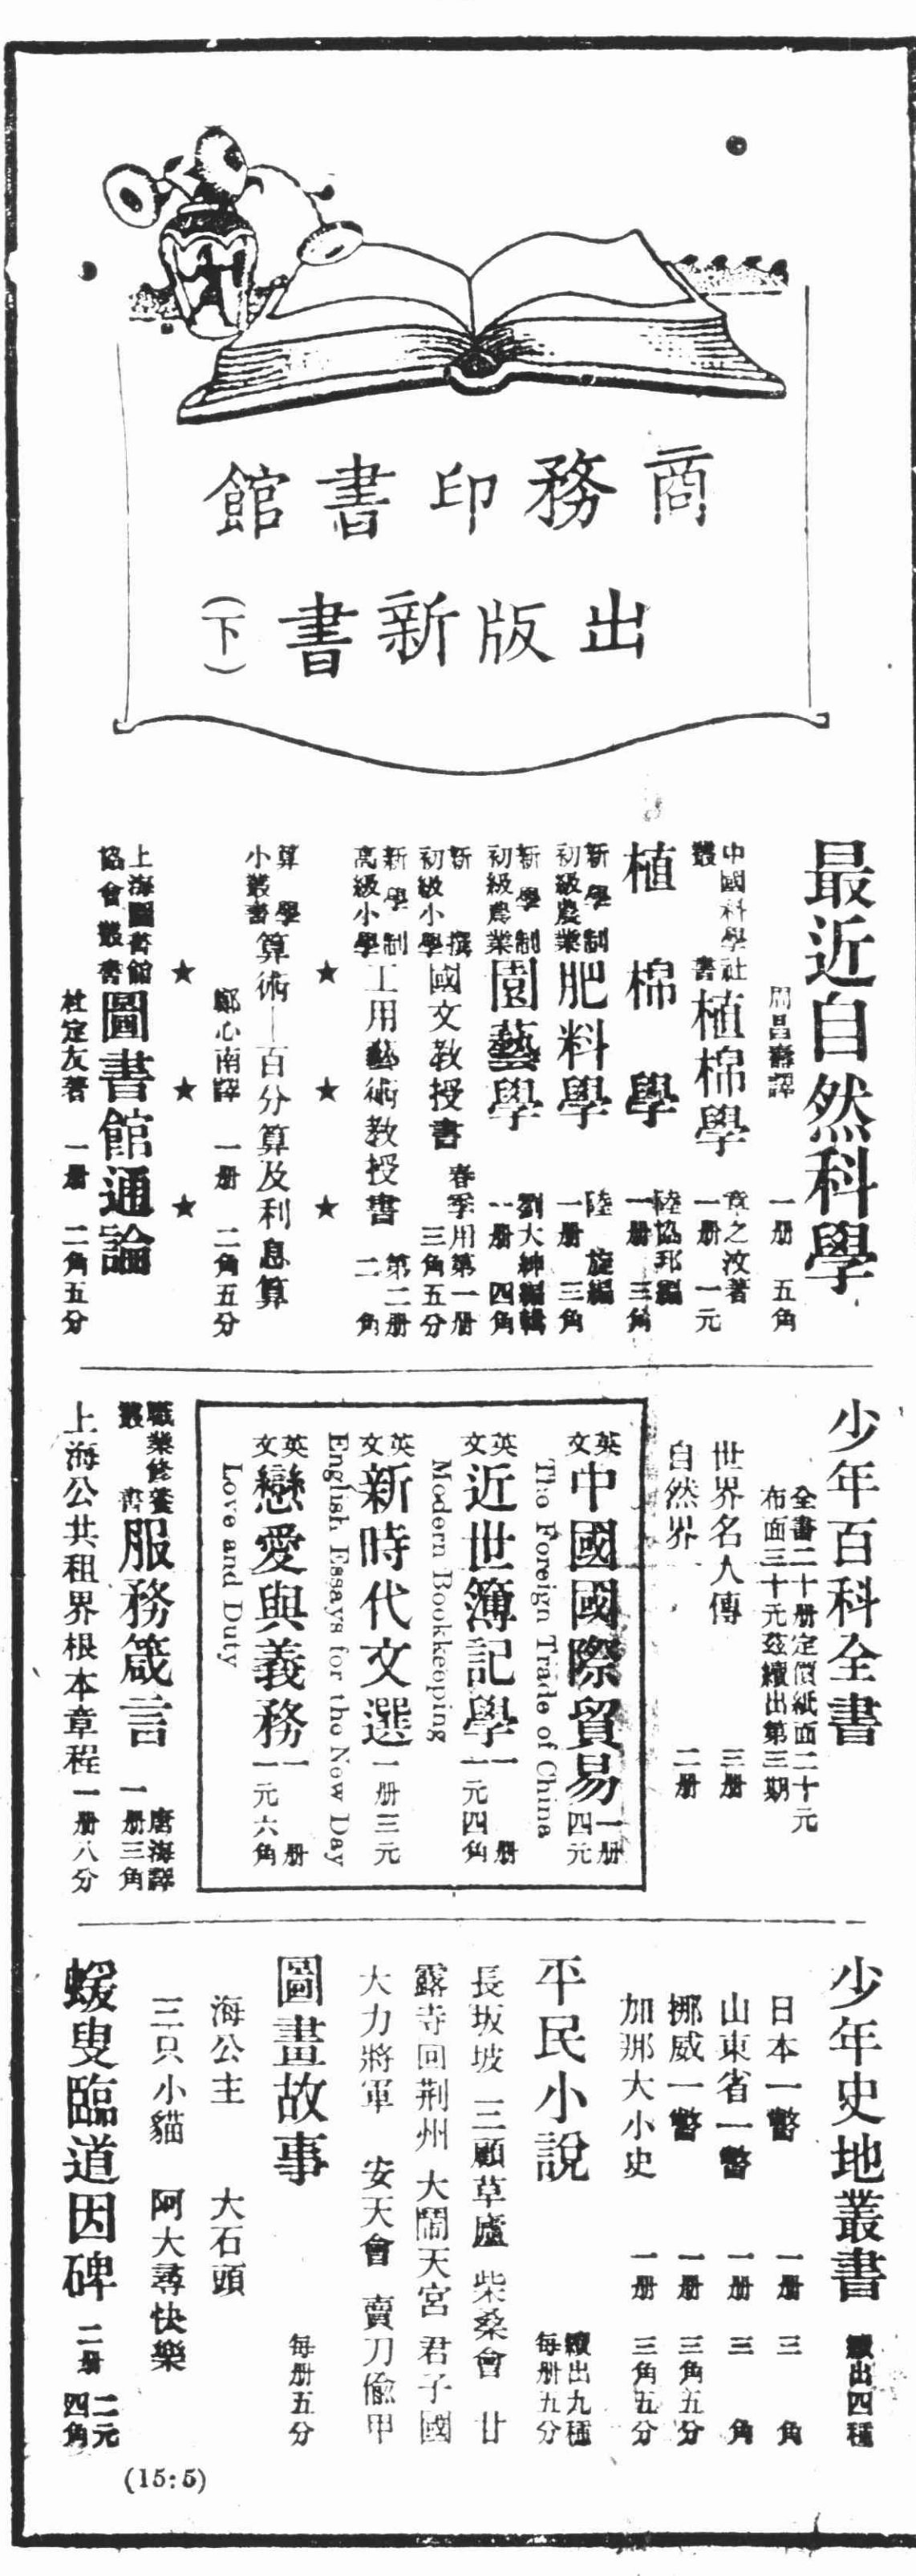 商務印書館
出版新書(下)
最近自然科學
周昌壽譯 一册 五角
中國科學社叢書 植棉學 章之汶著 一册 一元
植棉學 陸協邦編 一册 三角
新學制初級農業 肥料學 陸旋編 一册 三角
新學制初級農業 園藝學 劉大紳編輯 一册 四角
新撰初級小學 國文教授書 春季用第一册 三角五分
新學制高級小學 工用藝術教授書 第二册 二角
★ ★ ★
算學小叢書 算術—百分算及利息算
鄭心南譯 一册 二角五分
★ ★ ★
上海圖書館協會叢書 圖書館通論
杜定友著 一册 二角五分
少年百科全書
全書二十册定價紙面二十元
布面三十元茲續出第三期
世界名人傳 三册
自然界 二册
英文 中國國際貿易 一册 四元
The Foreign Trade of China
英文 近世簿記學 一册 一元四角
Modern Bookkeeping
英文 新時代文選 一册三元
English Essays for the New Day
英文 戀愛與義務 一册 一元六角
Love and Duty
職業修養叢書 服務箴言 唐海譯 一册三角
上海公共租界根本章程 一册八分
少年史地叢書 續出四種
日本一瞥 一册 三角
山東省一瞥 一册 三角
挪威一瞥 一册 三角五分
加那大小史 一册 三角五分
平民小說 續出九種 每册五分
長坂坡 三顧草廬 柴桑會 廿
露寺回荆州 大鬧天宮 君子國
大力將軍 安天會 賣刀偷甲
圖畫故事 每册五分
海公主 大石頭
三只小貓 阿大尋快樂
蝯叟臨道因碑 二册 二元四角
(15:5)